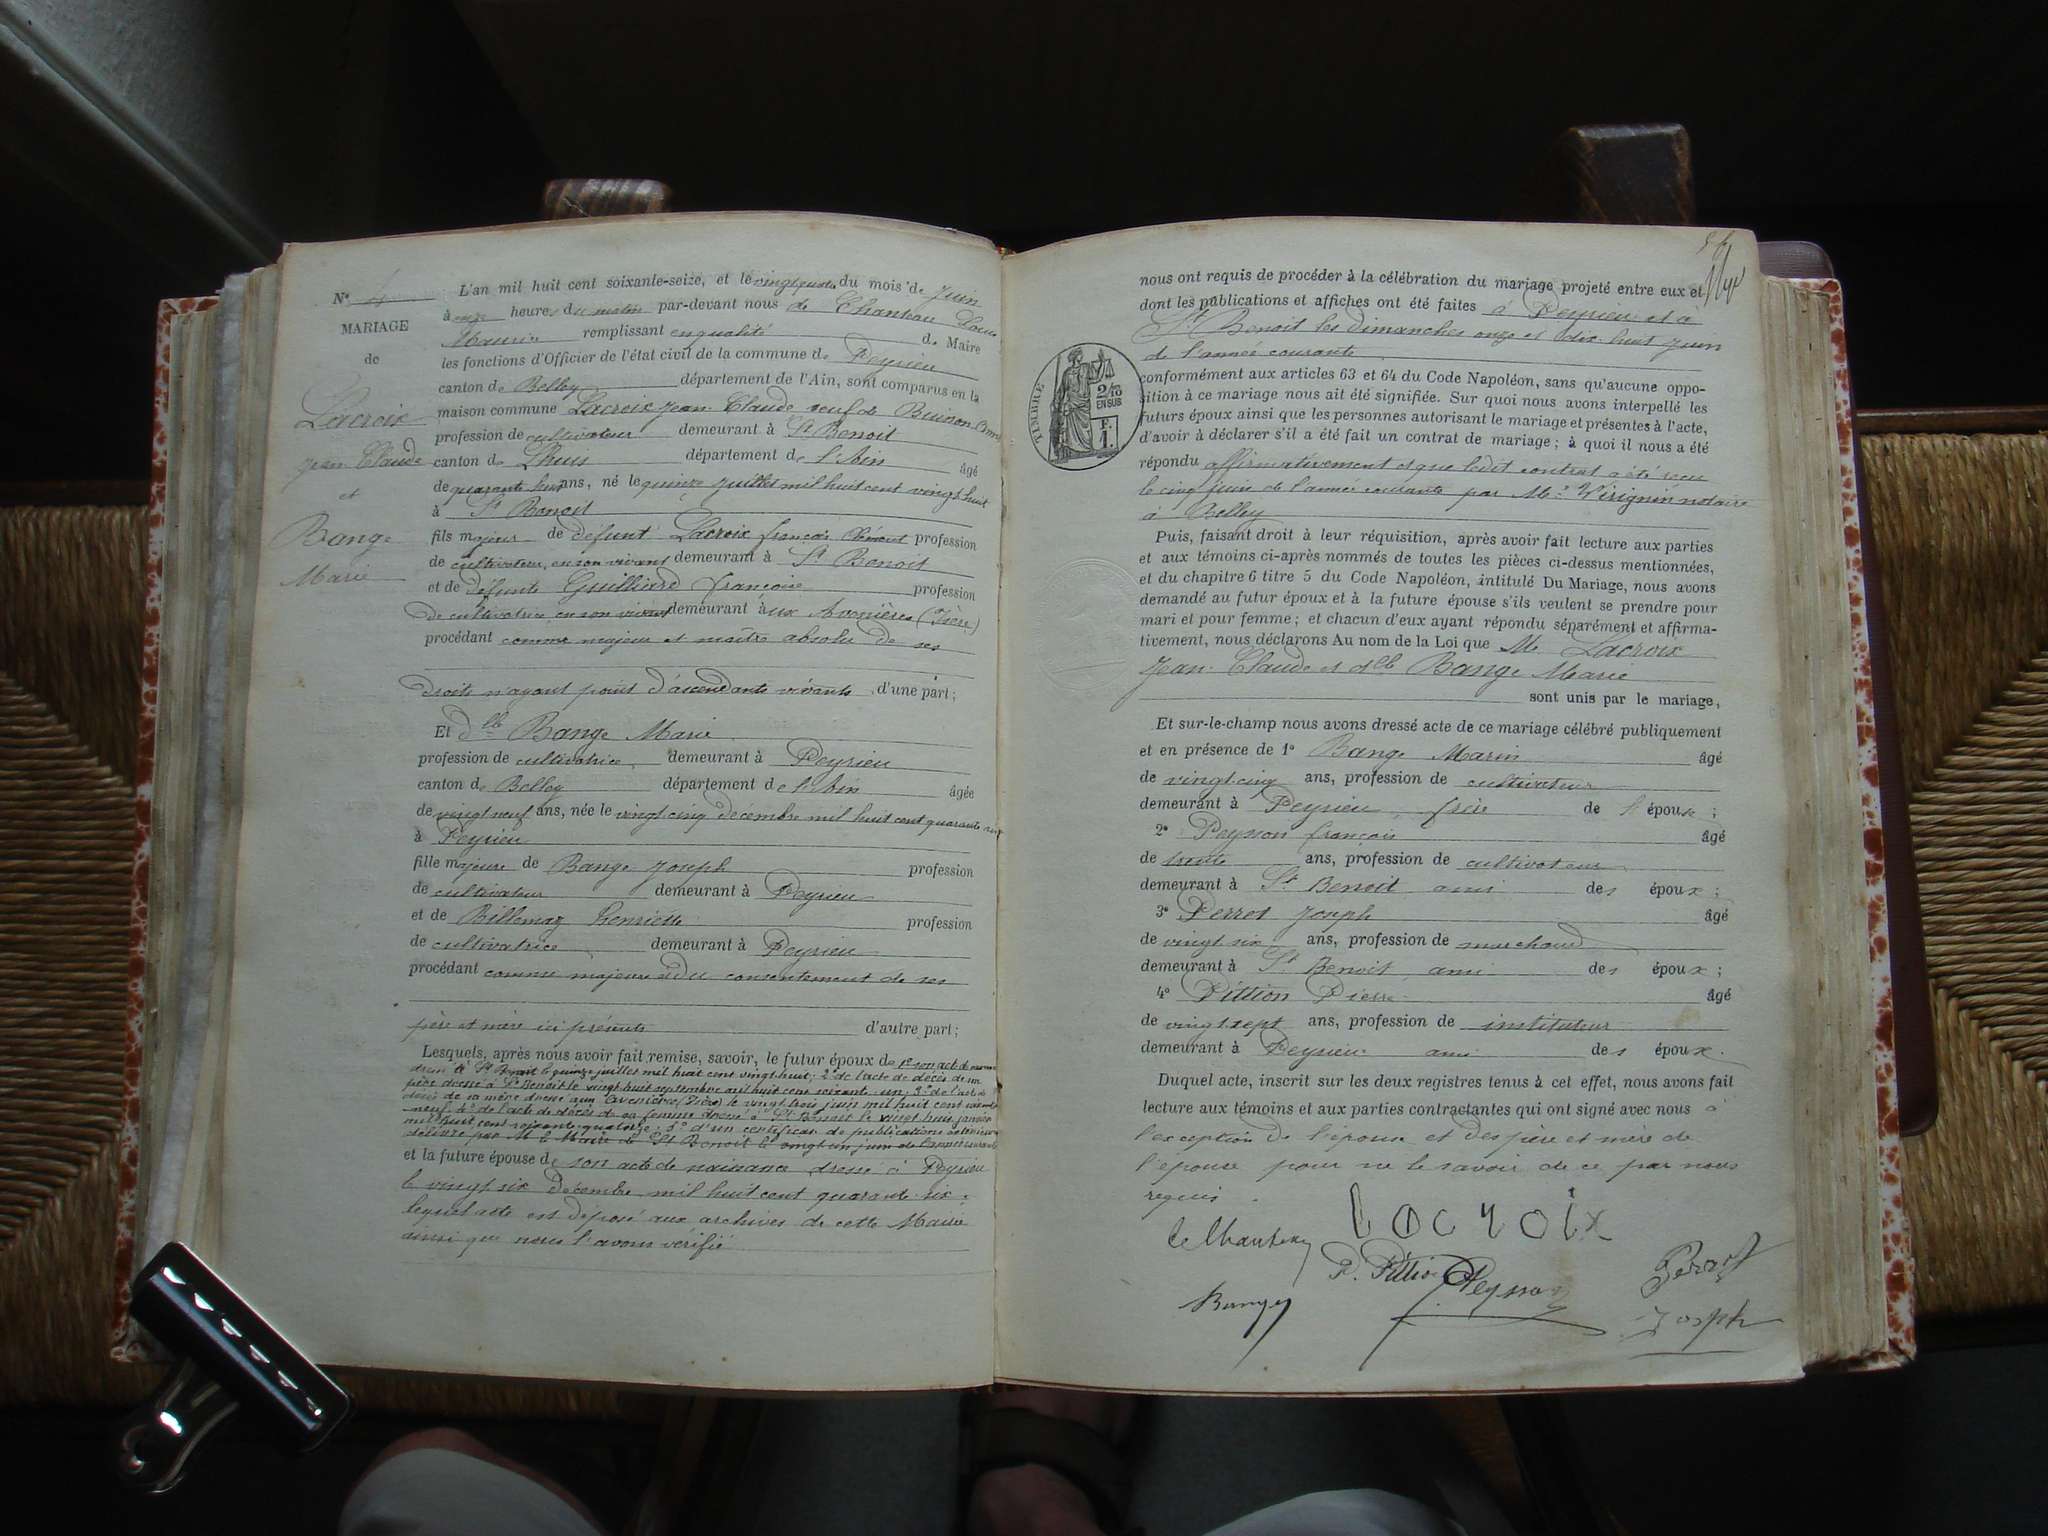 N° 4
MARIAGE
de
Lacroix
Jean Claude
et
Bange
Marie
L'an mil huit cent soixante-seize, et le du mois de Juin
à onze heures du matin par-devant nous de Chanteau Louis
Maurice remplissant en qualité de Maire
les fonctions d'Officier de l'état civil de la commune de Peyrieu
canton de Belley département de l'Ain, sont comparus en la
maison commune Lacroix Jean Claude veuf de Buisson
profession de cultivateur demeurant à St Benoit
canton de Lhuis département de l'Ain âgé
de quarante huit ans, né le quinze Juillet mil huit cent vingt huit
à St Benoit
fils majeur de défunt Lacroix françois Clément profession
de cultivateur, en son vivant demeurant à St Benoit
et de défunte Guilliard françoise profession
de cultivatrice en son vivant demeurant aux Avenières (Isère)
procédant comme majeur et maître absolu de ses
droits n'ayant point d'ascendants vivants d'une part;
Et dlle Bange Marie
profession de cultivatrice demeurant à Peyrieu
canton de Belley département de l'Ain âgée
de vingt neuf ans, née le vingt cinq décembre mil huit cent quarante six
à Peyrieu
fille majeure de Bange Joseph profession
de cultivateur demeurant à Peyrieu
et de Billemaz henriette profession
de cultivatrice demeurant à Peyrieu
procédant comme majeure et du consentement de ses
père et mère ici présents d'autre part;
Lesquels, après nous avoir fait remise, savoir, le futur époux de 1° son acte de
à St Benoit le quinze juillet mil huit cent vingt huit; 2° de l'acte de décès de son
père dressé à St Benoit le vingt huit septembre mil huit cent soixante un, 3° de l'acte de
décès de sa mère dressé aux Avenières (Isère) le vingt trois juin mil huit cent
neuf, 4° de l'acte de décès de sa femme dressé à St Benoit le vingt huit janvier
mil huit cent soixante quatorze; 5° d'un certificat de publications
délivré par M. le Maire de St Benoit le vingt un juin de l'année courante
et la future épouse de son acte de naissance dressé à Peyrieu
le vingt six décembre mil huit cent quarante six,
lequel acte est déposé aux archives de cette Mairie
ainsi que nous l'avons vérifié
nous ont requis de procéder à la célébration du mariage projeté entre eux et
dont les publications et affiches ont été faites à Peyrieu et à
St Benoit les dimanches onze et dix-huit Juin
de l'année courante
conformément aux articles 63 et 64 du Code Napoléon, sans qu'aucune oppo-
sition à ce mariage nous ait été signifiée. Sur quoi nous avons interpellé les
futurs époux ainsi que les personnes autorisant le mariage et présentes à l'acte,
d'avoir à déclarer s'il a été fait un contrat de mariage; à quoi il nous a été
répondu affirmativement et que ledit contrat a été reçu
le cinq juin de l'année courante par Me Virignin notaire
à Belley
TIMBRE
2/10
EN SUS
F.
1.
Puis, faisant droit à leur réquisition, après avoir fait lecture aux parties
et aux témoins ci-après nommés de toutes les pièces ci-dessus mentionnées,
et du chapitre 6 titre 5 du Code Napoléon, intitulé Du Mariage, nous avons
demandé au futur époux et à la future épouse s'ils veulent se prendre pour
mari et pour femme; et chacun d'eux ayant répondu séparément et affirma-
tivement, nous déclarons Au nom de la Loi que M. Lacroix
Jean Claude et dlle Bange Marie
sont unis par le mariage,
Et sur-le-champ nous avons dressé acte de ce mariage célébré publiquement
et en présence de 1° Bange Marin âgé
de vingt cinq ans, profession de cultivateur
demeurant à Peyrieu, frère de l'épouse;
2° Peysson françois âgé
de trente ans, profession de cultivateur
demeurant à St Benoit ami des époux;
3° Perrot Joseph âgé
de vingt six ans, profession de marchand
demeurant à St Benoit ami des époux;
4° Pittion Pierre âgé
de vingt sept ans, profession de instituteur
demeurant à Peyrieu ami des époux.
Duquel acte, inscrit sur les deux registres tenus à cet effet, nous avons fait
lecture aux témoins et aux parties contractantes qui ont signé avec nous à
l'exception de l'épouse et des père et mère de
l'épouse pour ne le savoir de ce par nous
requis
Lacroix
de Chanteau
P. Pittion Peysson Perrot
Bange Joseph